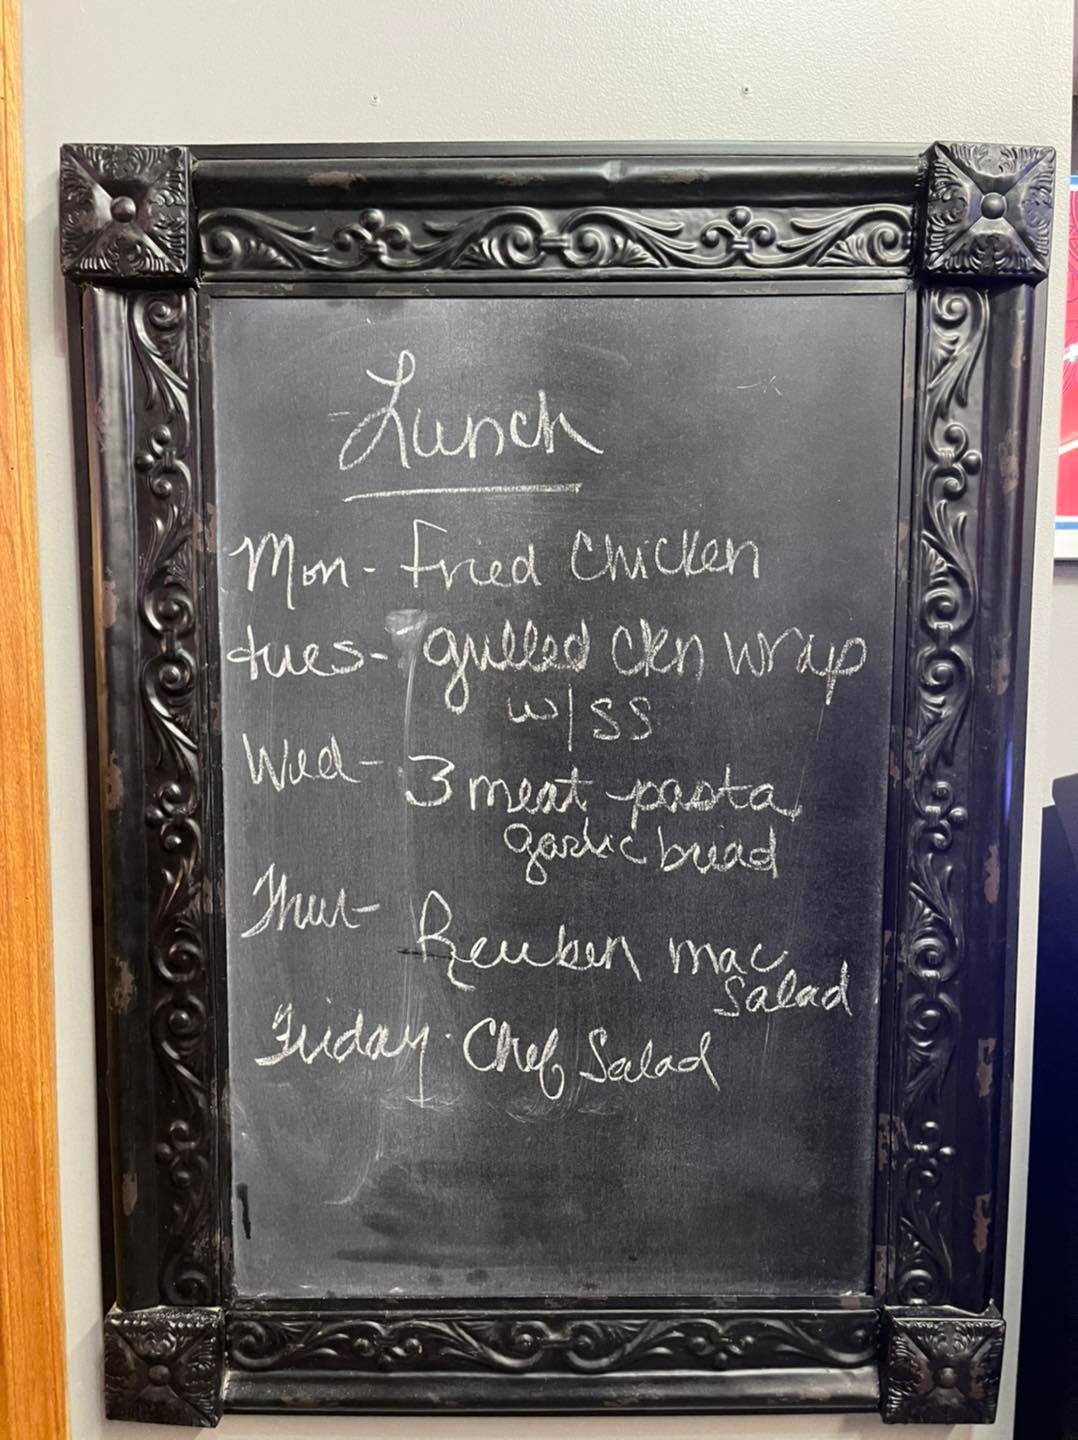 Lunch
Mon- Fried Chicken
tues- grilled ckn wrap
w/ SS
Wed- 3 meat pasta
garlic bread
Thur- Reuben mac
Salad
Friday- Chef Salad